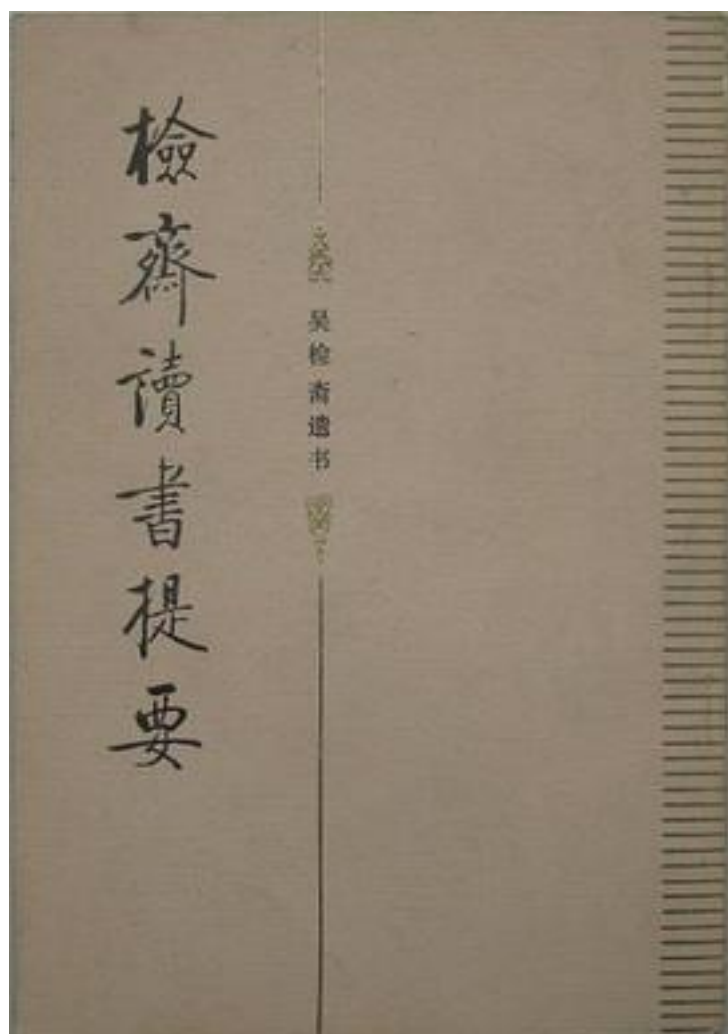 檢齋讀書提要
吴检斋遗书